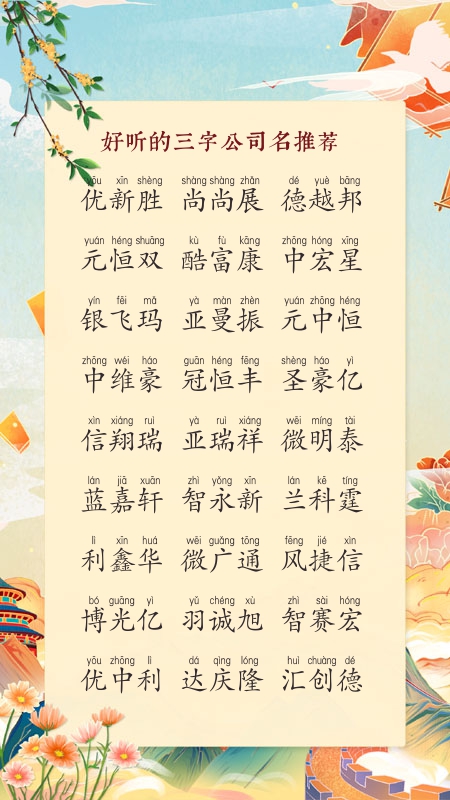 好听的三字公司名推荐
yōu xīn shèng shàng shàng zhǎn dé yuè bāng
优新胜 尚尚展 德越邦
yuán héng shuāng kù fù kāng zhōng hóng xīng
元恒双 酷富康 中宏星
yín fēi mǎ yà màn zhèn yuán zhōng héng
银飞玛 亚曼振 元中恒
zhōng wéi háo guān héng fēng shèng háo yì
中维豪 冠恒丰 圣豪亿
xìn xiáng ruì yà ruì xiáng wēi míng tài
信翔瑞 亚瑞祥 微明泰
lán jiā xuān zhì yǒng xīn lán kē tíng
蓝嘉轩 智永新 兰科霆
lì xīn huá wēi guǎng tōng fēng jié xìn
利鑫华 微广通 风捷信
bó guāng yì yǔ chéng xù zhì sài hóng
博光亿 羽诚旭 智赛宏
yōu zhōng lì dá qìng lóng huì chuàng dé
优中利 达庆隆 汇创德